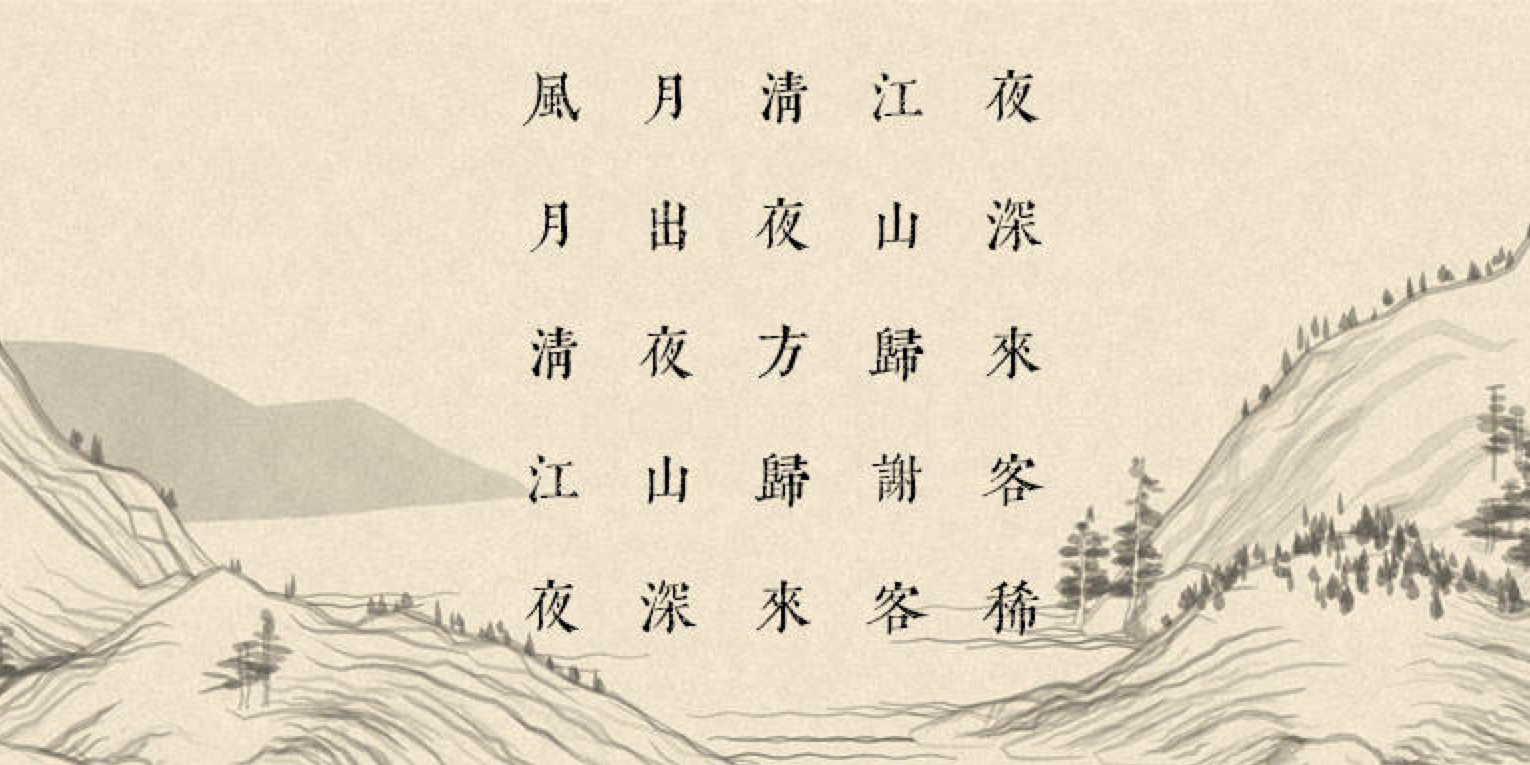 風月清江夜
月出夜山深
清夜方歸來
江山歸謝客
夜深來客稀